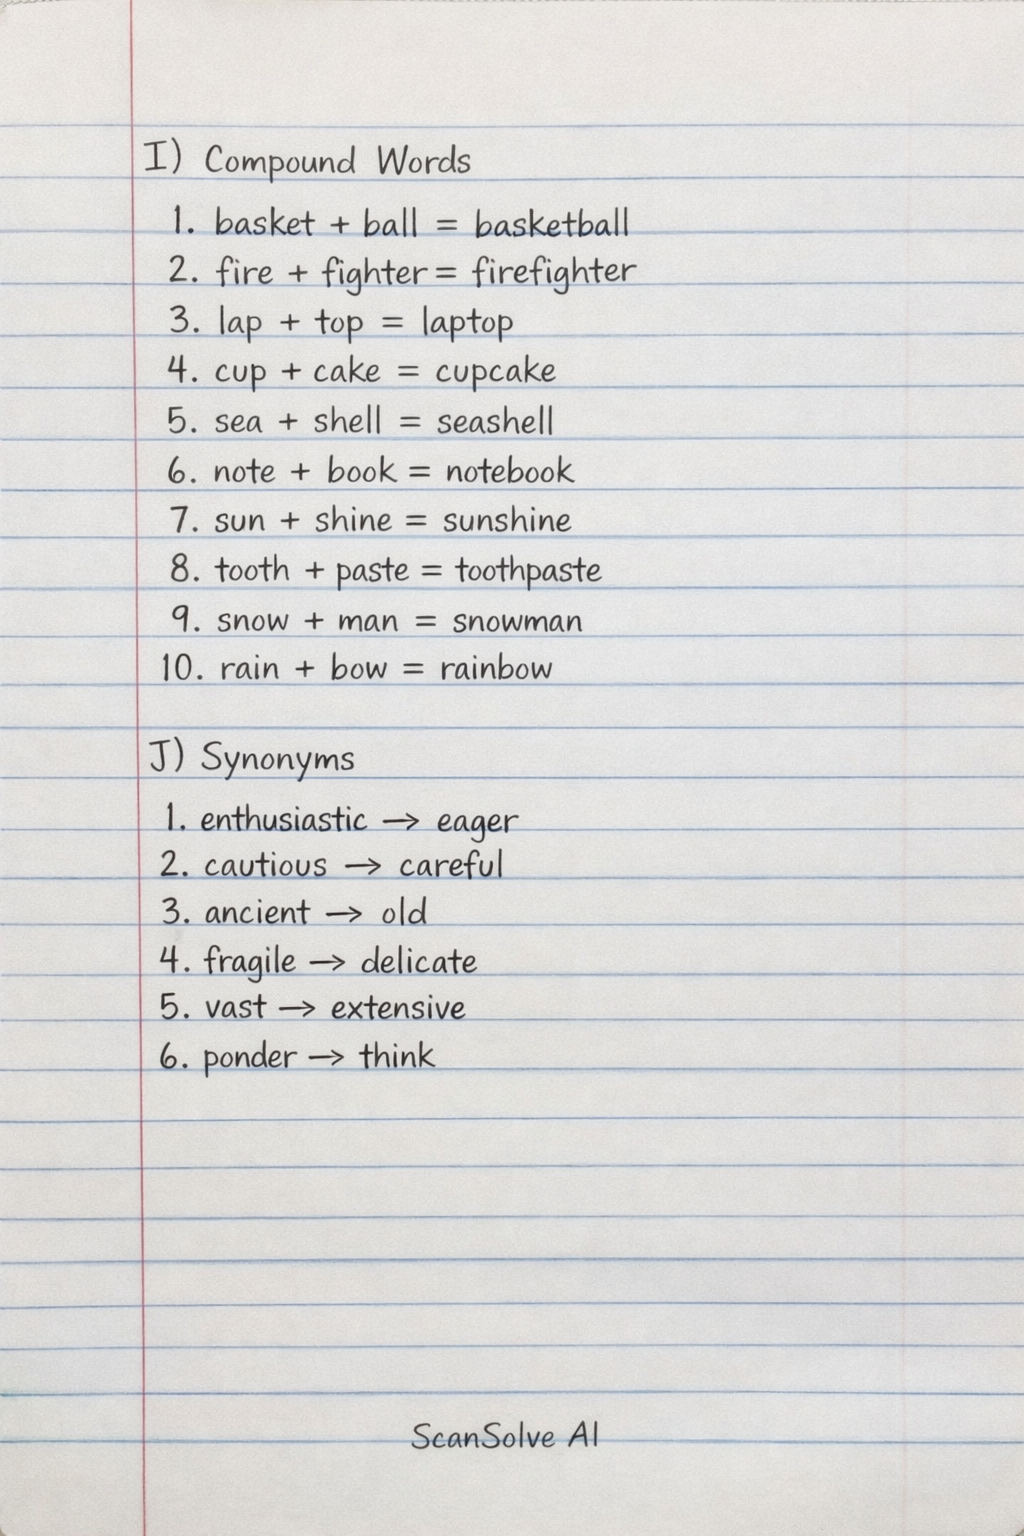 I) Compound Words
1. basket + ball = basketball
2. fire + fighter = firefighter
3. lap + top = laptop
4. cup + cake = cupcake
5. sea + shell = seashell
6. note + book = notebook
7. sun + shine = sunshine
8. tooth + paste = toothpaste
9. snow + man = snowman
10. rain + bow = rainbow
J) Synonyms
1. enthusiastic → eager
2. cautious → careful
3. ancient → old
4. fragile → delicate
5. vast → extensive
6. ponder → think
ScanSolve AI